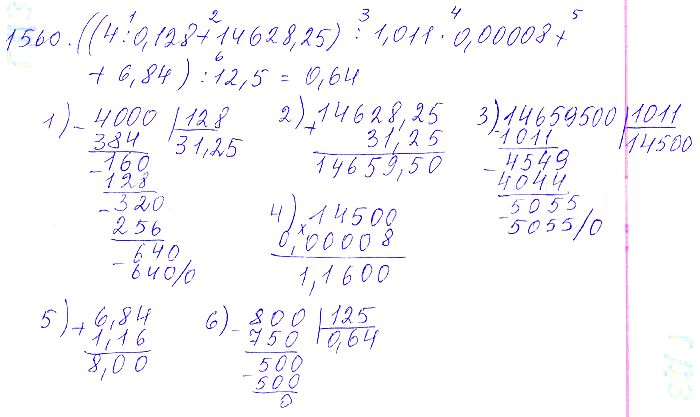 1560. ((4 : 0,128 + 14628,25) : 1,011 · 0,00008 +
1 2 3 4 5
+ 6,84) : 12,5 = 0,64
6
1) - 4000 | 128
384 31,25
- 160
128
- 320
256
- 640
640/0
2) + 14628,25
31,25
14659,50
3) - 14659500 | 1011
1011 14500
- 4549
4044
- 5055
5055/0
4) × 14500
0,00008
1,1600
5) + 6,84
1,16
8,00
6) - 800 | 125
750 0,64
- 500
500
0